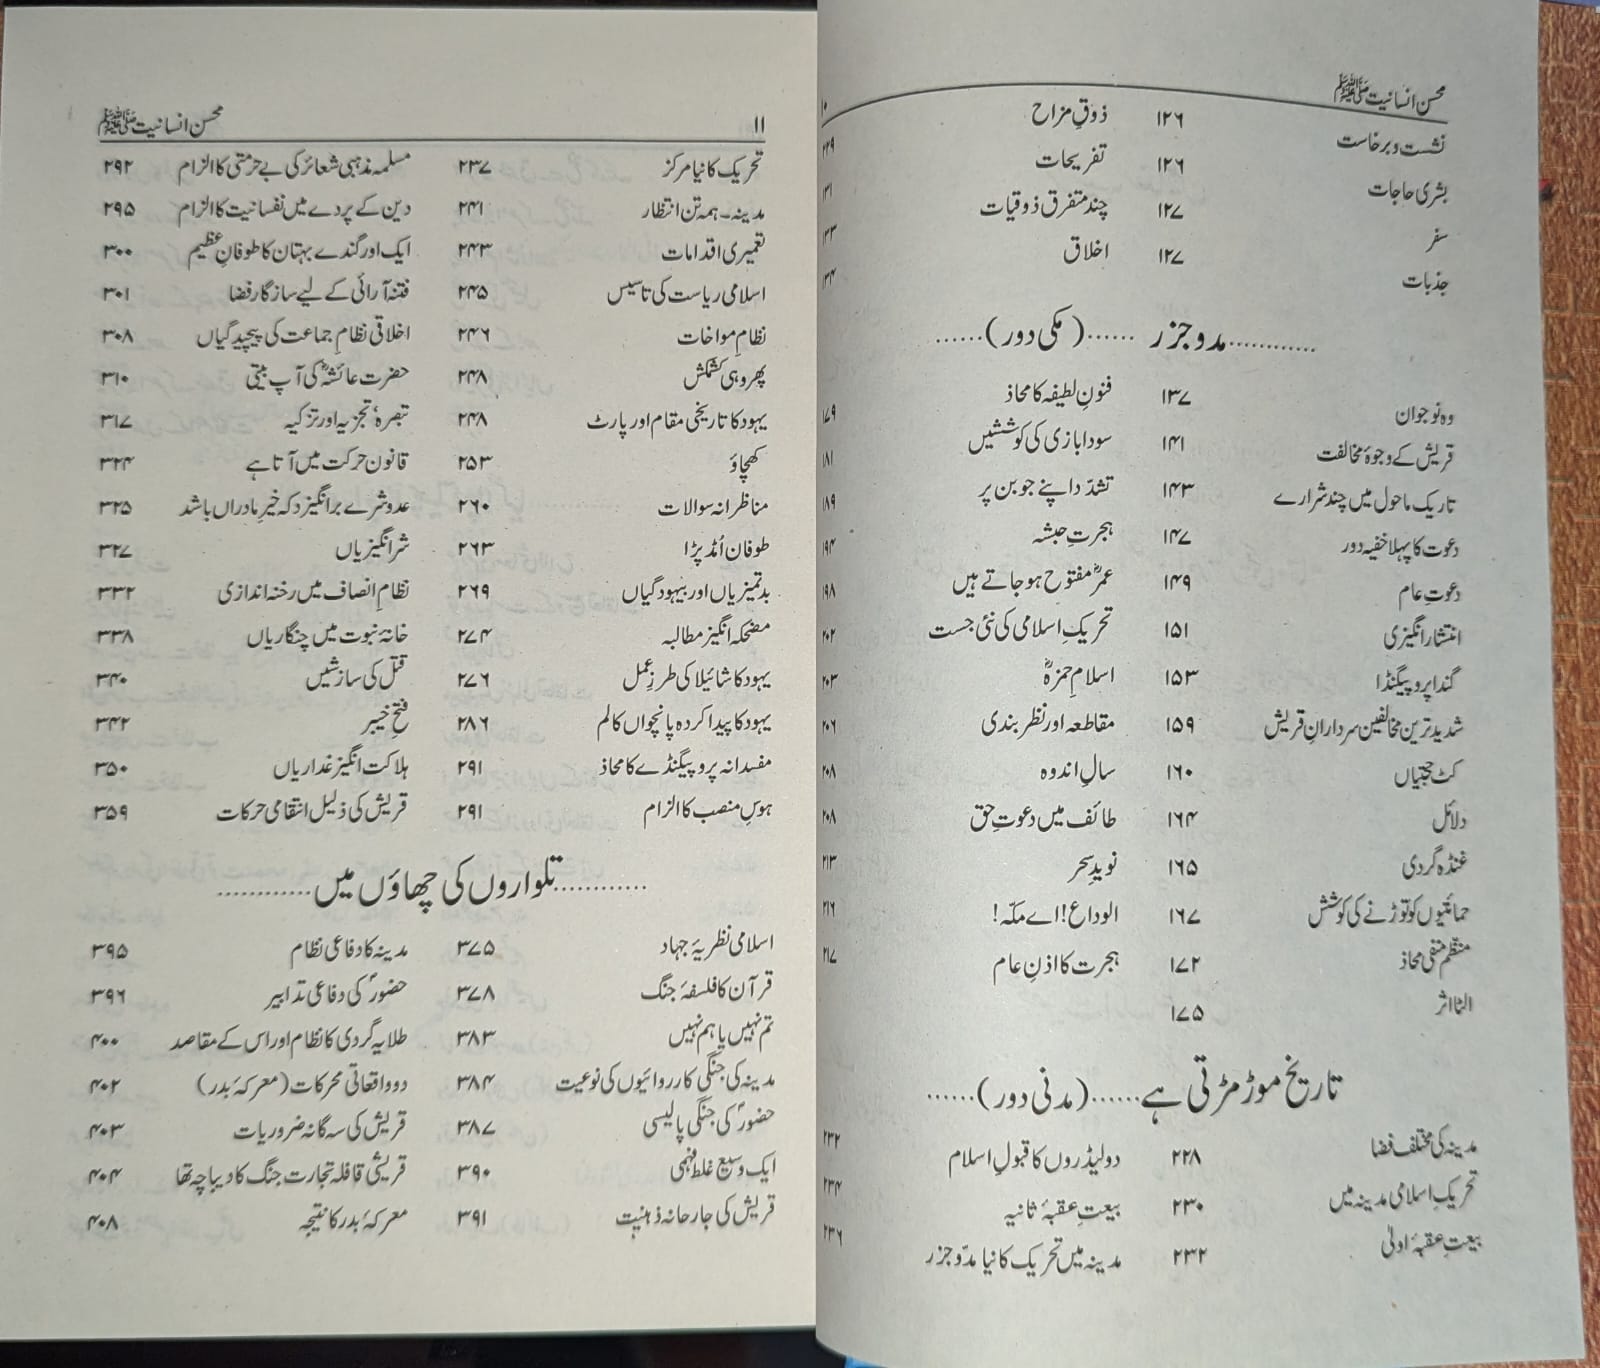 محسن انسانیت ﷺ
نشست و برخاست ۱۲۶ ذوقِ مزاح ۱۲۹
بشری حاجات ۱۲۶ تفریحات ۱۳۱
سفر ۱۲۷ چند متفرق ذوقیات ۱۳۳
جذبات ۱۲۷ اخلاق ۱۳۴
............مدوجزر ......(مکی دور)......
وہ نوجوان ۱۳۷ فنونِ لطیفہ کا محاذ ۱۷۹
قریش کے وجوہٗ مخالفت ۱۴۱ سودا بازی کی کوششیں ۱۸۱
تاریک ماحول میں چند شرارے ۱۴۳ تشدّد اپنے جوبن پر ۱۸۹
دعوت کا پہلا خفیہ دور ۱۴۷ ہجرتِ حبشہ ۱۹۴
دعوتِ عام ۱۴۹ عمرؓ مفتوح ہو جاتے ہیں ۱۹۸
انتشار انگیزی ۱۵۱ تحریکِ اسلامی کی نئی جست ۲۰۲
گندا پروپیگنڈا ۱۵۳ اسلامِ حمزہؓ ۲۰۳
شدید ترین مخالفین سردارانِ قریش ۱۵۹ مقاطعہ اور نظر بندی ۲۰۶
کٹ حجتیاں ۱۶۰ سالِ اندوہ ۲۰۸
دلائل ۱۶۴ طائف میں دعوتِ حق ۲۰۸
غنڈہ گردی ۱۶۵ نویدِ سحر ۲۱۳
حمائتیوں کو توڑنے کی کوشش ۱۶۷ الوداع! اے مکّہ! ۲۱۶
منظم منفی محاذ ۱۷۲ ہجرت کا اذنِ عام ۲۱۷
الٹا اثر ۱۷۵
تاریخ موڑ مڑتی ہے......(مدنی دور)......
مدینہ کی مختلف فضا ۲۲۸ دو لیڈروں کا قبولِ اسلام ۲۳۲
تحریکِ اسلامی مدینہ میں ۲۳۰ بیعتِ عقبہٗ ثانیہ ۲۳۴
بیعتِ عقبہٗ اولیٰ ۲۳۲ مدینہ میں تحریک کا نیا مدّوجزر ۲۳۶
۱۱ محسن انسانیت ﷺ
تحریک کا نیا مرکز ۲۳۷ مسلمہ مذہبی شعائر کی بے حرمتی کا الزام ۲۹۲
مدینہ۔ ہمہ تن انتظار ۲۴۱ دین کے پردے میں نفسانیت کا الزام ۲۹۵
تعمیری اقدامات ۲۴۳ ایک اور گندے بہتان کا طوفانِ عظیم ۳۰۰
اسلامی ریاست کی تاسیس ۲۴۵ فتنہ آرائی کے لیے سازگار فضا ۳۰۱
نظامِ مواخات ۲۴۶ اخلاقی نظامِ جماعت کی پیچیدگیاں ۳۰۸
پھر وہی کشمکش ۲۴۸ حضرت عائشہؓ کی آپ بیتی ۳۱۰
یہود کا تاریخی مقام اور پارٹ ۲۴۸ تبصرہ' تجزیہ اور تزکیہ ۳۱۷
کھچاؤ ۲۵۳ قانون حرکت میں آتا ہے ۳۲۴
مناظرانہ سوالات ۲۶۰ عدو شرے برانگیزد کہ خیرِ مادراں باشد ۳۲۵
طوفان اُمڈ پڑا ۲۶۳ شر انگیزیاں ۳۲۷
بدتمیزیاں اور بیہودگیاں ۲۶۹ نظامِ انصاف میں رخنہ اندازی ۳۳۲
مضحکہ انگیز مطالبہ ۲۷۴ خانہٗ نبوت میں چنگاریاں ۳۳۸
یہود کا شائیلا کی طرزِ عمل ۲۷۶ قتل کی سازشیں ۳۴۰
یہود کا پیدا کردہ پانچواں کالم ۲۸۶ فتحِ خیبر ۳۴۲
مفسدانہ پروپیگنڈے کا محاذ ۲۹۱ ہلاکت انگیز غداریاں ۳۵۰
ہوسِ منصب کا الزام ۲۹۱ قریش کی ذلیل انتقامی حرکات ۳۵۹
............تلواروں کی چھاؤں میں............
اسلامی نظریہٗ جہاد ۳۷۵ مدینہ کا دفاعی نظام ۳۹۵
قرآن کا فلسفہٗ جنگ ۳۷۸ حضورؐ کی دفاعی تدابیر ۳۹۶
تم نہیں یا ہم نہیں ۳۸۳ طلایہ گردی کا نظام اور اس کے مقاصد ۴۰۰
مدینہ کی جنگی کارروائیوں کی نوعیت ۳۸۴ دو واقعاتی محرکات (معرکہٗ بدر) ۴۰۲
حضورؐ کی جنگی پالیسی ۳۸۷ قریش کی سہ گانہ ضروریات ۴۰۳
ایک وسیع غلط فہمی ۳۹۰ قریشی قافلہ تجارت جنگ کا دیباچہ تھا ۴۰۴
قریش کی جارحانہ ذہنیت ۳۹۱ معرکہٗ بدر کا نتیجہ ۴۰۸